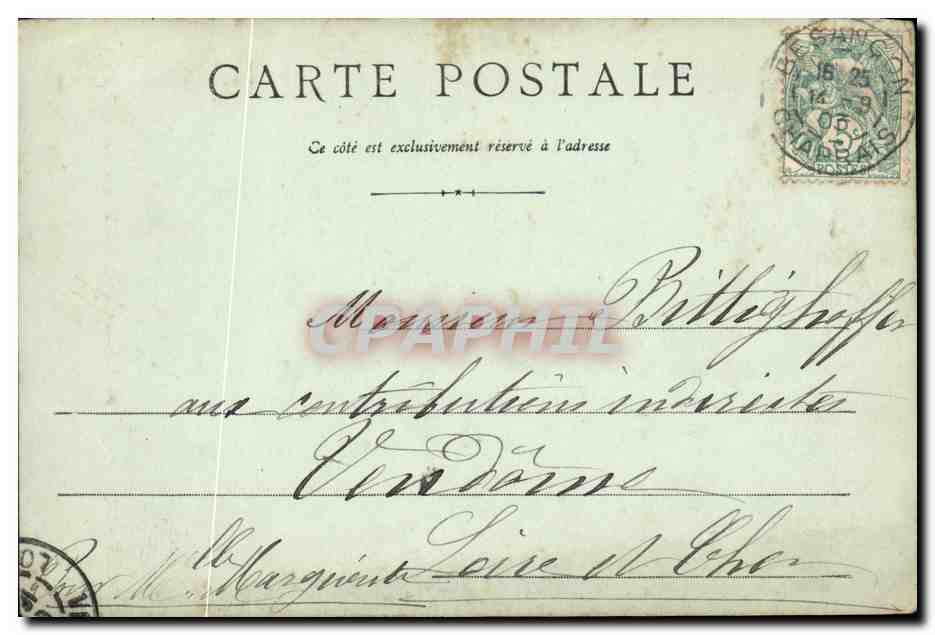 CARTE POSTALE
Ce côté est exclusivement réservé à l'adresse
BESANÇON
16 25
14 - 9
05
CHAPRAIS
5
POSTES
CPAPHIL
Monsieur Bittighoffer
aux contributions indirectes
Vendôme
Loire et Cher
Pour Melle Marguerite